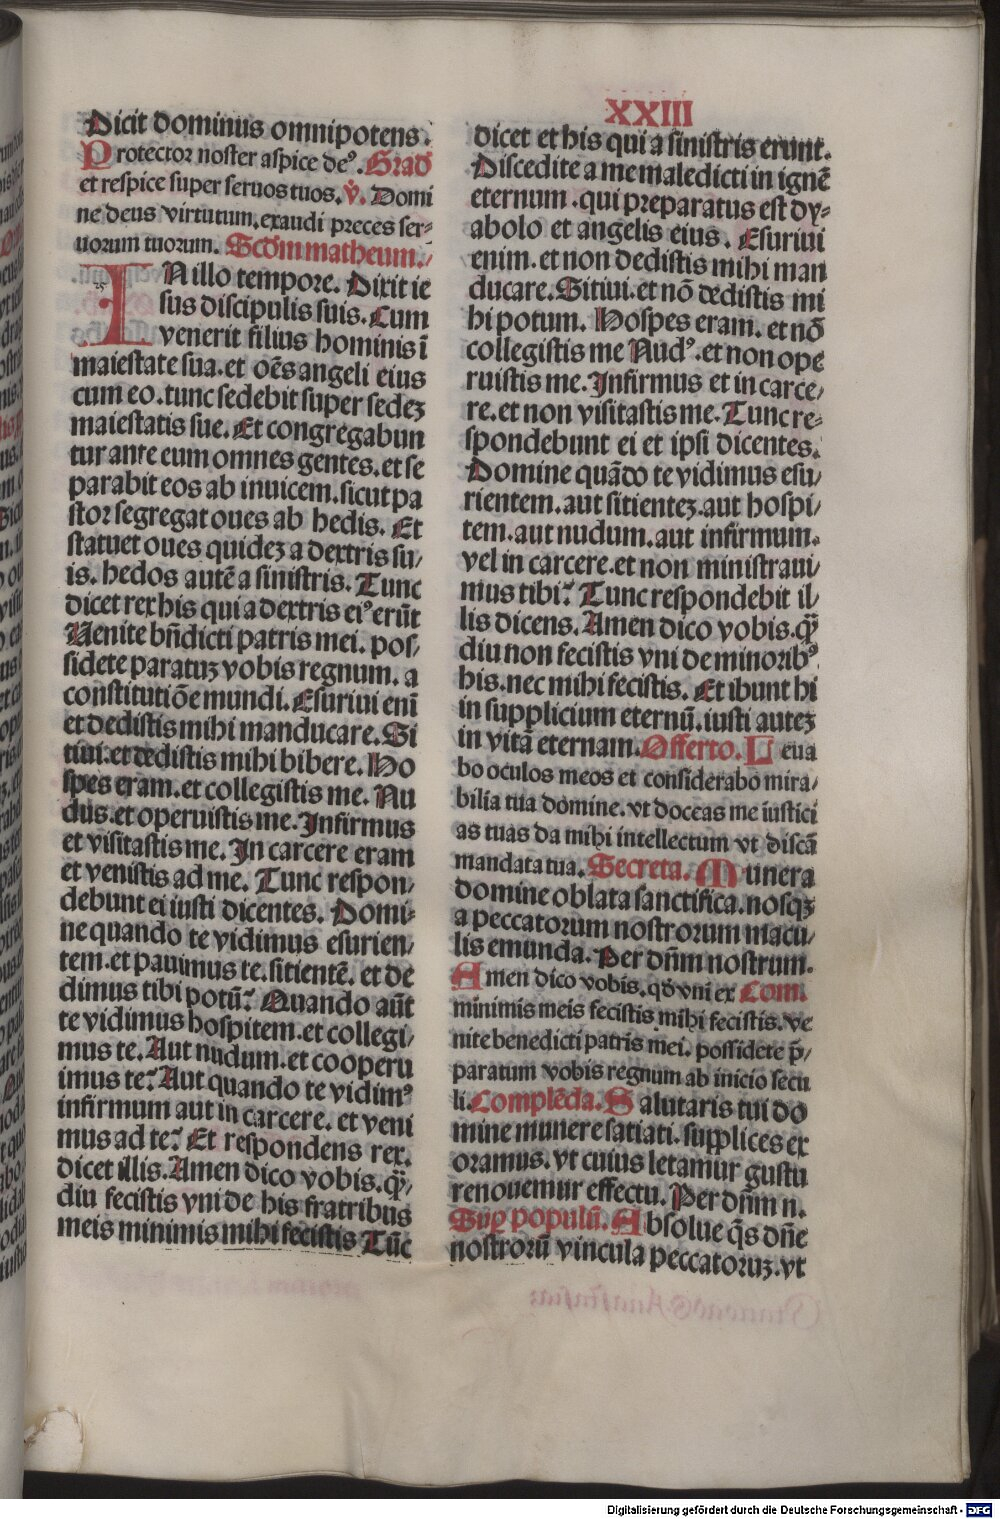 XXIII
Dicit dominus omnipotens.
Protector noster aspice deꝰ. Grad̄
et respice super seruos tuos. v̊. Domi
ne deus virtutum. exaudi preces ser⸗
uorum tuorum. Scd̄m matheum.
IN illo tempore. Dixit ie
sus discipulis suis. Cum
venerit filius hominis ī
maiestate sua. et oēs angeli eius
cum eo. tunc sedebit super sedeꝫ
maiestatis sue. Et congregabun
tur ante eum omnes gentes. et se
parabit eos ab inuicem. sicut pa
stor segregat oues ab hedis. Et
statuet oues quideꝫ a dextris su/
is. hedos autē a sinistris. Tunc
dicet rex his qui a dextris eiꝰ erūt
Uenite bn̄dicti patris mei. pos/
sidete paratuꝫ vobis regnum. a
constitutiōe mundi. Esuriui eni
et dedistis mihi manducare. Si
tiui. et dedistis mihi bibere. Ho
spes eram. et collegistis me. Nu
dus. et operuistis me. Infirmus
et visitastis me. In carcere eram
et venistis ad me. Tunc respon/
debunt ei iusti dicentes. Domi⸗
ne quando te vidimus esurien/
tem. et pauimus te. sitientē. et de
dimus tibi potū? Quando aūt
te vidimus hospitem. et collegi/
mus te. Aut nudum. et cooperu
imus te? Aut quando te vidimꝰ
infirmum aut in carcere. et veni
mus ad te? Et respondens rex.
dicet illis. Amen dico vobis. qꝫ̄/
diu fecistis vni de his fratribus
meis minimis mihi fecistis Tūc
dicet et his qui a sinistris erunt.
Discedite a me maledicti in ignē
eternum. qui preparatus est dy⸗
abolo et angelis eius. Esuriui
enim. et non dedistis mihi man
ducare. Sitiui. et nō dedistis mi
hi potum. Hospes eram. et nō
collegistis me Nudꝰ. et non ope
ruistis me. Infirmus et in carce/
re. et non visitastis me. Tunc re⸗
spondebunt ei et ipsi dicentes.
Domine quādo te vidimus esu/
rientem. aut sitienteꝫ. aut hospi/
tem. aut nudum. aut infirmum.
vel in carcere. et non ministraui/
mus tibi? Tunc respondebit il/
lis dicens. Amen dico vobis. qꝫ̄
diu non fecistis vni de minoribꝰ
his. nec mihi fecistis. Et ibunt hi
in supplicium eternū. iusti auteꝫ
in vitā eternam. Offerto. Leua
bo oculos meos et considerabo mira/
bilia tua domine. vt doceas me iustici
as tuas da mihi intellectum vt discā
mandata tua. Secreta. Munera
domine oblata sanctifica. nosqꝫ
a peccatorum nostrorum macu/
lis emunda. Per dn̄m nostrum.
Amen dico vobis. qd̄ vni ex Com.
minimis meis fecistis mihi fecistis. ve
nite benedicti patris mei. possidete p̄/
paratum vobis regnum ab inicio secu
li. Complēda. Salutaris tui do
mine munere satiati. supplices ex
oramus. vt cuius letamur gustu
renouemur effectu. Per dn̄m n.
Suꝑ populū. Absolue qs̄ dn̄e
nostrorū vincula peccatoruꝫ. vt
Digitalisierung gefördert durch die Deutsche Forschungsgemeinschaft - DFG